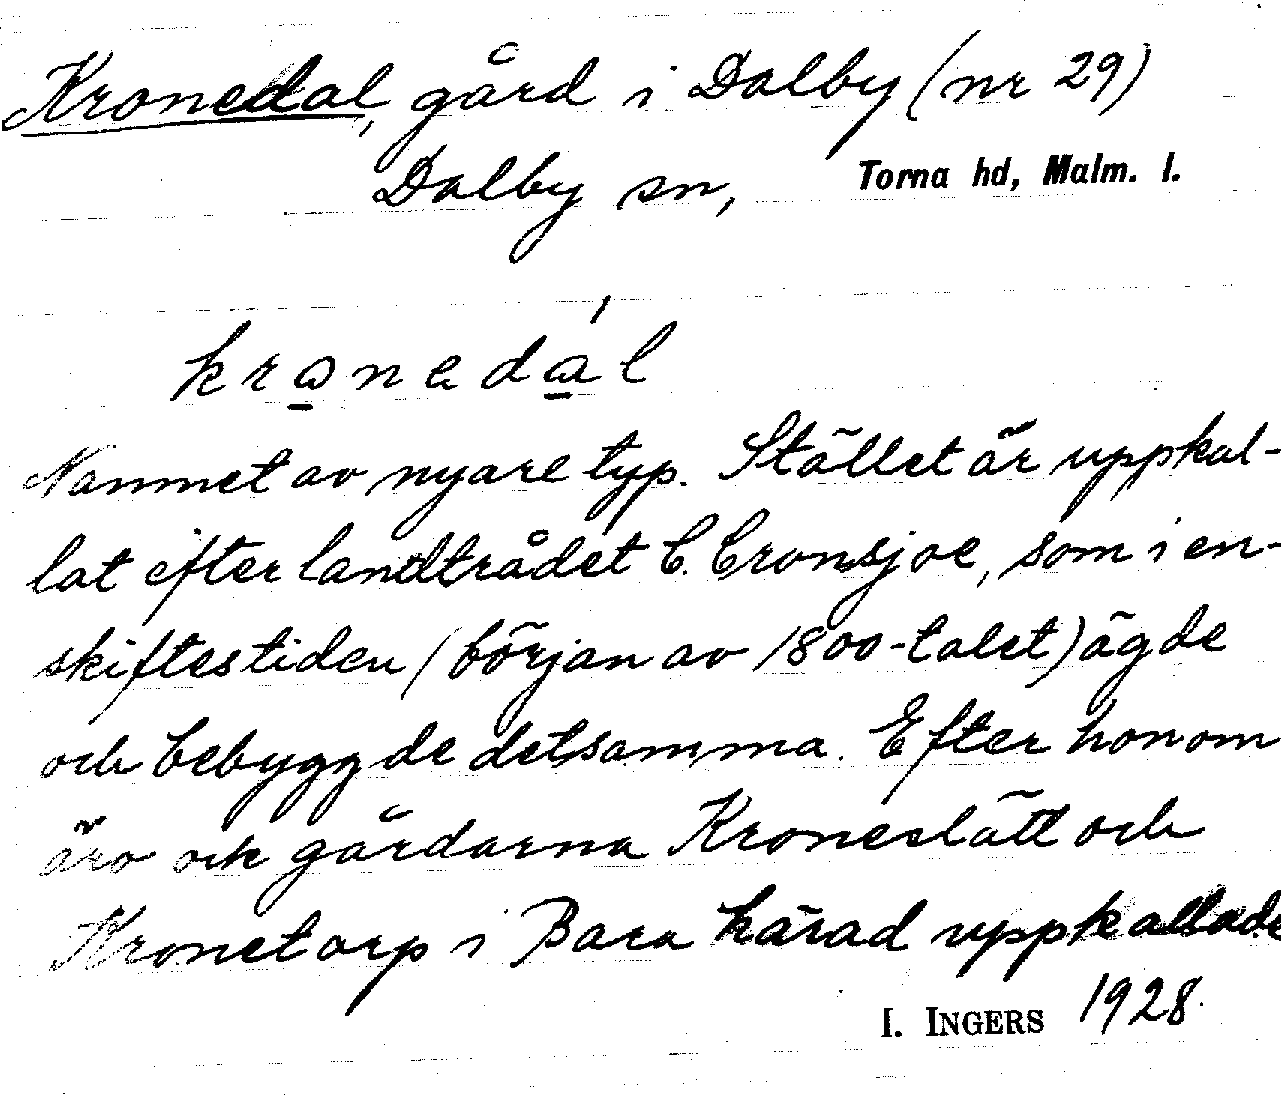 Kronedal, gård i Dalby (nr 29)
Dalby sn, Torna hd, Malm. l.
krω̱nedά̱l
Namnet av nyare typ. Stället är uppkal-
lat efter landtrådet C. Cronsjoe, som i en-
skiftestiden (början av 1800-talet) ägde
och bebyggde detsamma. Efter honom
äro ock gårdarna Kroneslätt och
Kronetorp i Bara härad uppkallade
I. INGERS 1928.